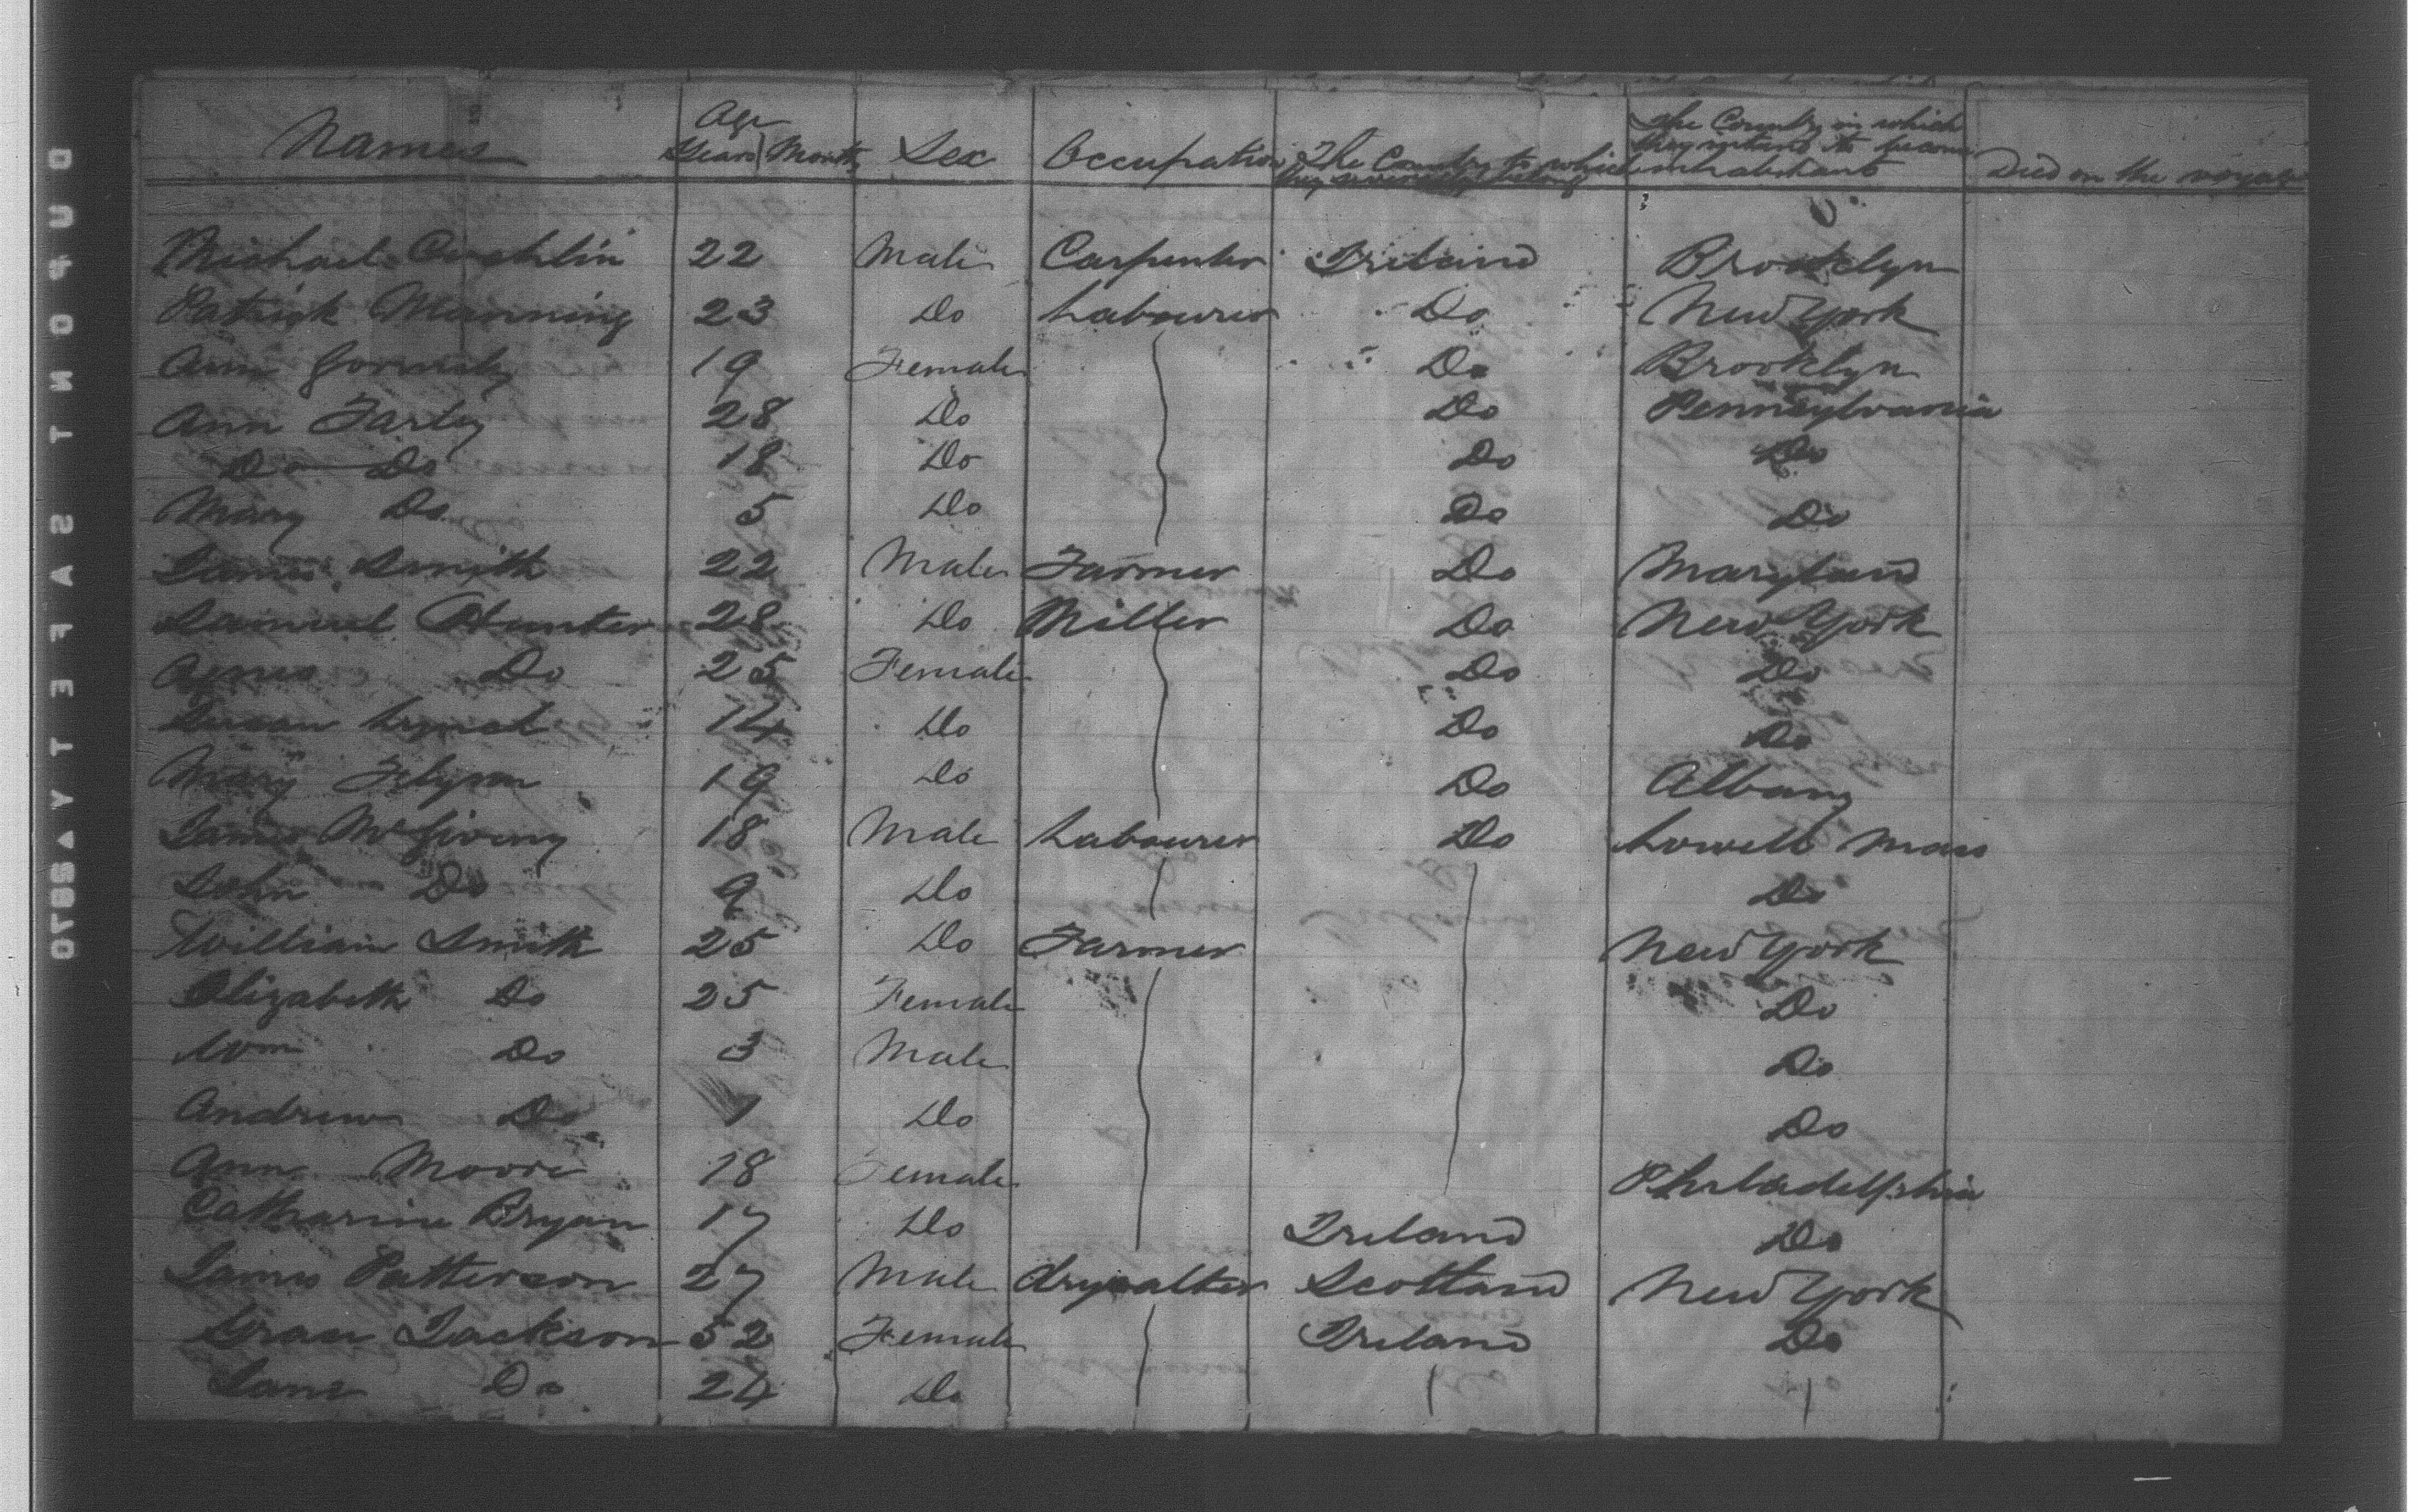 Names Age Years Months Sex Occupation The Country to which they severally belong The Country in which they intend to become inhabitants Died on the voyage
Michael 22 Male Carpenter Ireland Brooklyn
Patrick Manning 23 Do Labourer Do New York
Ann Gormley 19 Female Do Brooklyn
Ann Farley 28 Do Do Pennsylvania
Do Do 18 Do Do Do
Mary Do 5 Do Do Do
James Smith 22 Male Farmer Do Maryland
Samuel Hunter 28 Do Miller Do New York
Agnes Do 25 Female Do Do
Susan Lynch 14 Do Do Do
Mary 19 Do Do Albany
James McGiveny 18 Male Labourer Do Lowell Mass
John Do 9 Do Do
William Smith 25 Do Farmer New York
Elizabeth Do 25 Female Do
Wm Do 3 Male Do
Andrew Do 1 Do Do
Ann Moore 18 Female Philadelphia
Catharine Bryan 17 Do Ireland Do
James Patterson 27 Male drysalter Scotland New York
Grace Jackson 52 Female Ireland Do
Jane Do 24 Do
SAFETY